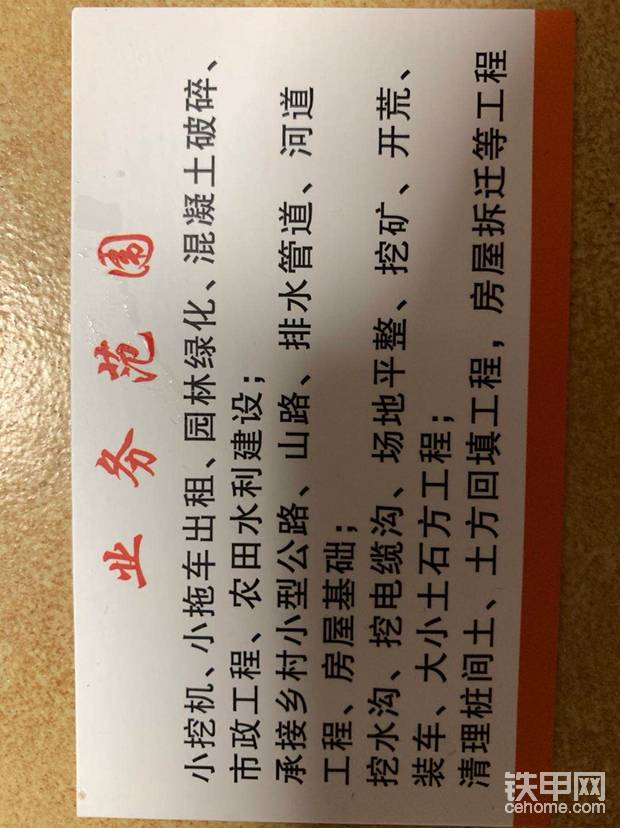 业务范围
小挖机、小拖车出租、园林绿化、混凝土破碎、
市政工程、农田水利建设；
承接乡村小型公路、山路、排水管道、河道
工程、房屋基础；
挖水沟、挖电缆沟、场地平整、挖矿、开荒、
装车、大小土石方工程；
清理桩间土、土方回填工程，房屋拆迁等工程
铁甲网
cehome.com